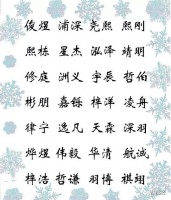 俊煜 浦深 尧熙 熙刚
熙栋 星杰 泓泽 靖朋
修庭 洲义 宇辰 哲伯
彬朋 嘉铄 梓洋 凌舟
律宁 逸凡 天霖 深羽
烨煜 伟毅 华清 航诚
梓浩 哲谦 羽博 祺翊